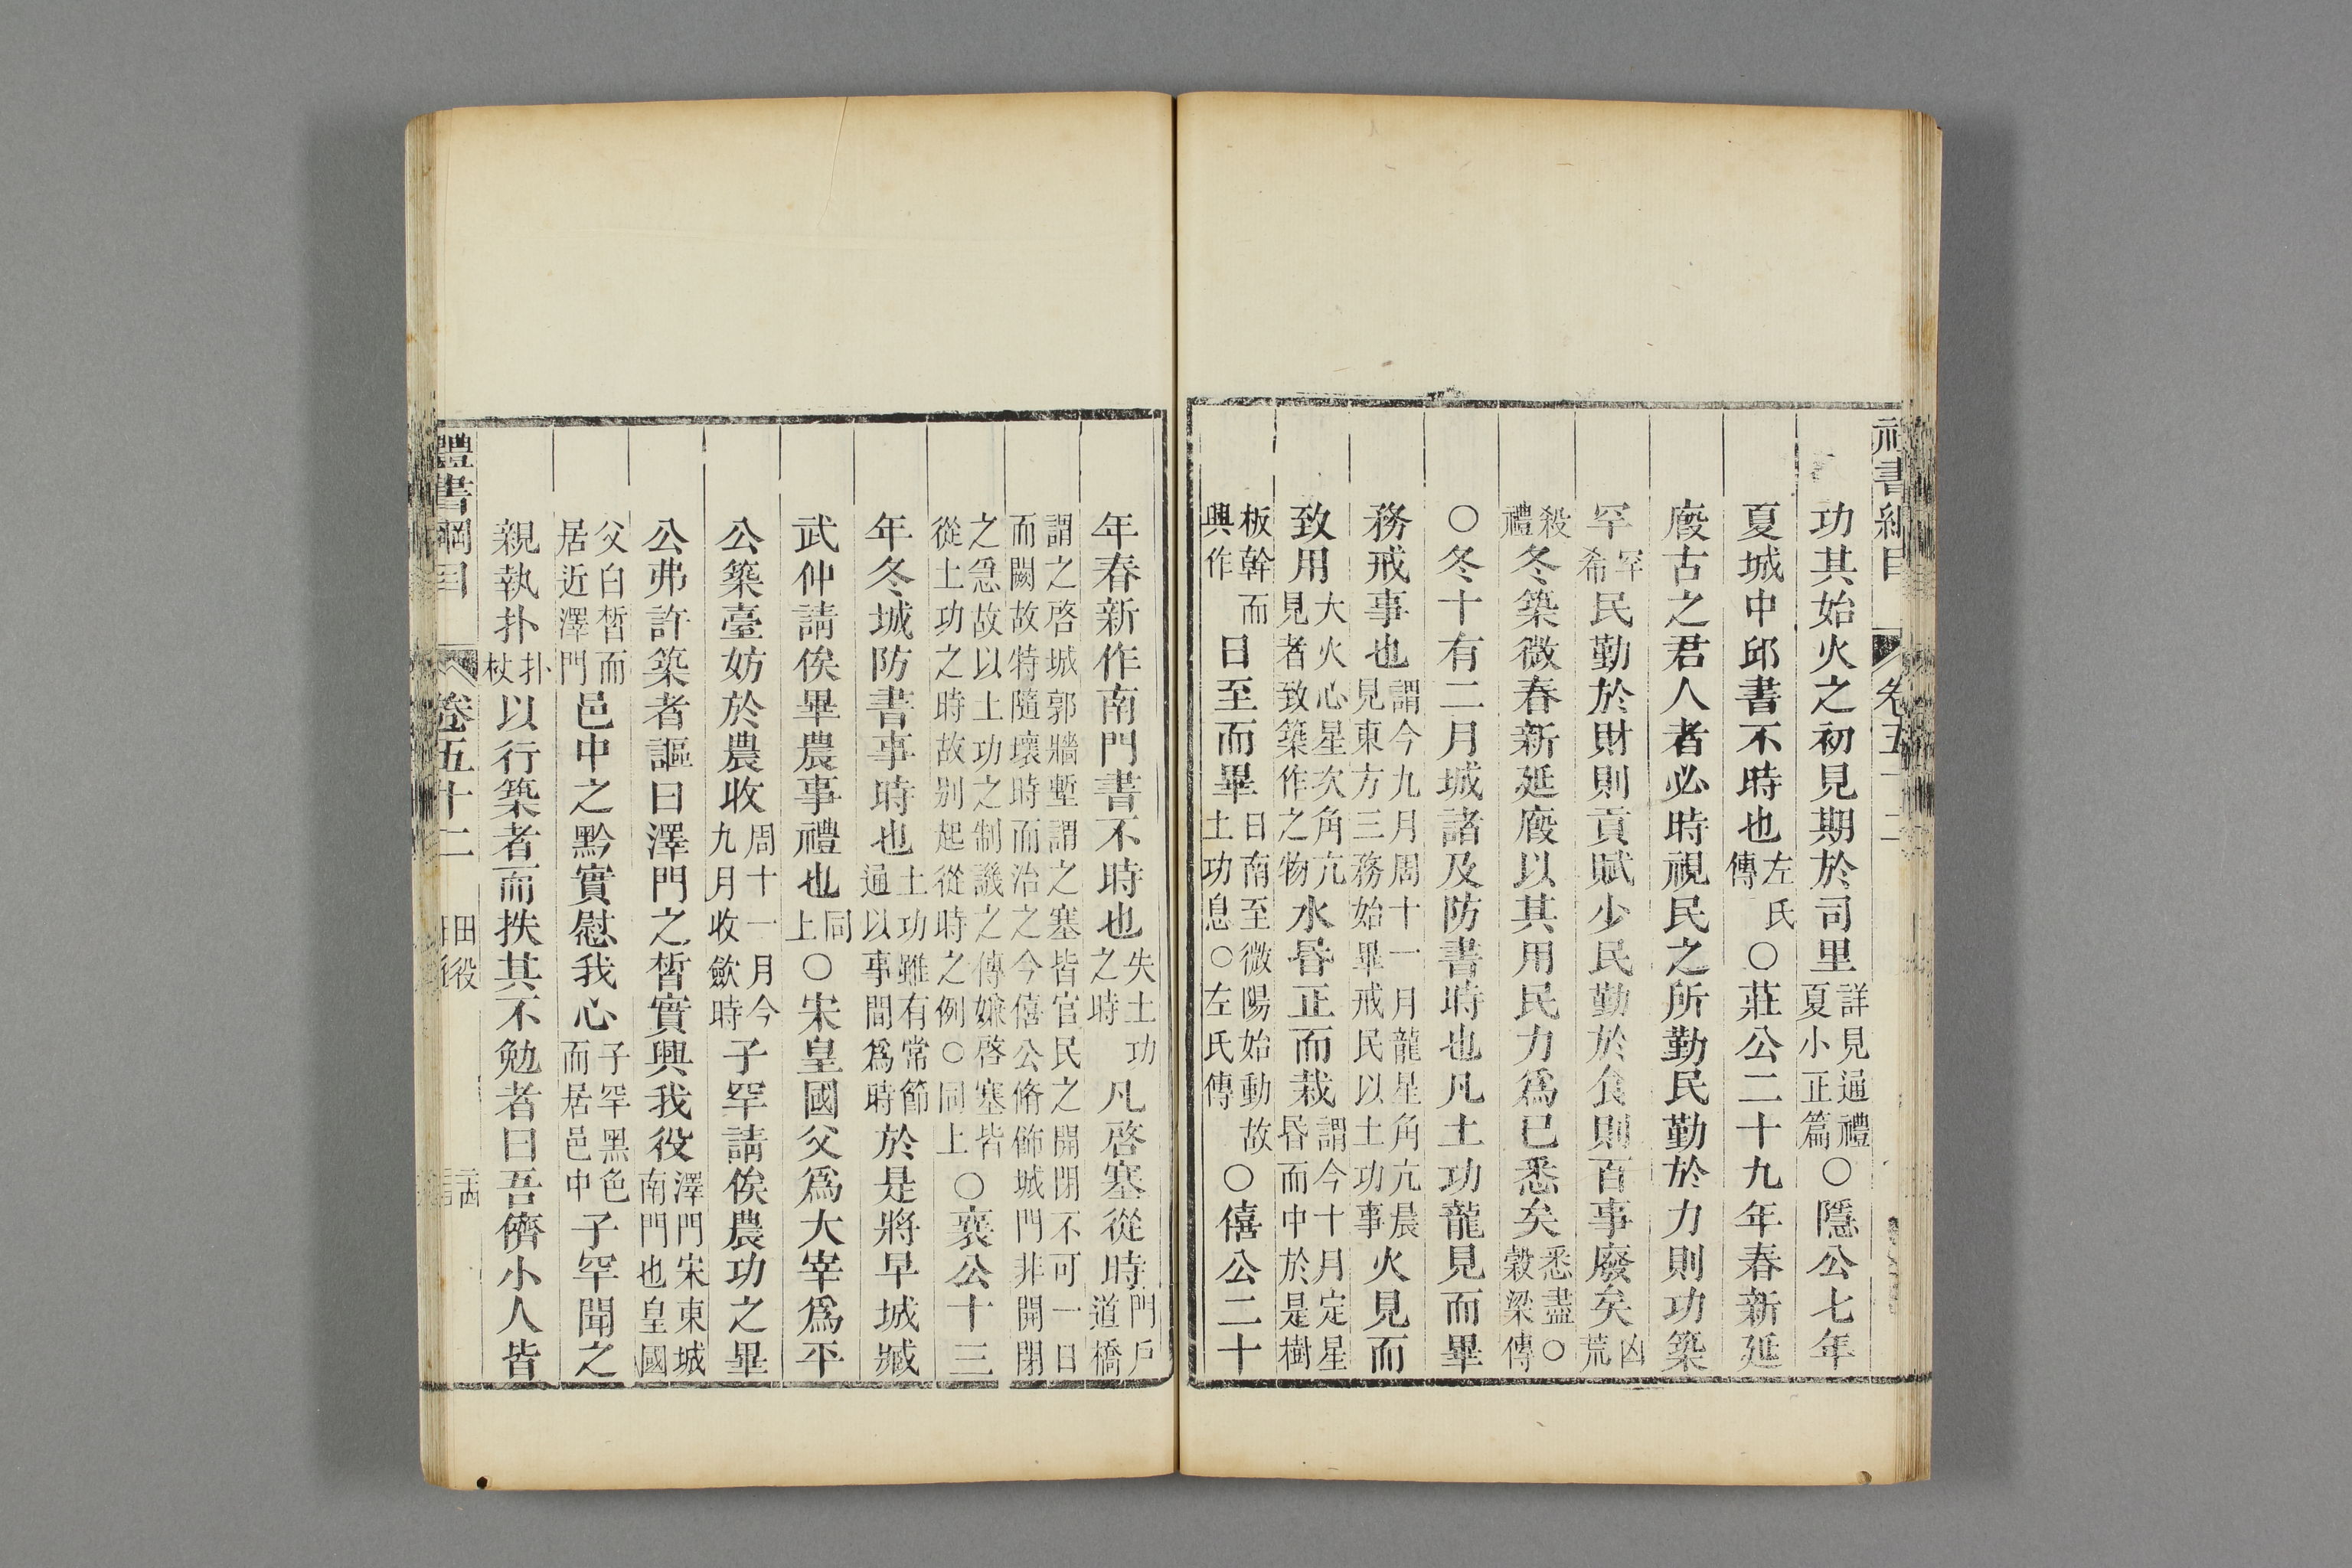 功其始火之初見期於司里詳見通禮夏小正篇○隱公七年
夏城中邱書不時也左氏傳○莊公二十九年春新延
廄古之君人者必時視民之所勤民勤於力則功築
罕罕希民勤於財則貢賦少民勤於食則百事廢矣凶荒
殺禮冬築微春新延廄以其用民力爲已悉矣悉盡○穀梁傳
○冬十有二月城諸及防書時也凡土功龍見而畢
務戒事也謂今九月周十一月龍星角亢晨見東方三務始畢戒民以土功事火見而
致用大火心星次角亢見者致築作之物水昏正而栽謂今十月定星昏而中於是樹
板幹而興作日至而畢日南至微陽始動故土功息○左氏傳○僖公二十
年春新作南門書不時也失土功之時凡啓塞從時門戶道橋
謂之啓城郭牆塹謂之塞皆官民之開閉不可一日而闕故特隨壞時而治之今僖公脩飾城門非開閉
之急故以土功之制譏之傳嫌啓塞皆從土功之時故別起從時之例○同上○襄公十三
年冬城防書事時也土功雖有常節通以事間爲時於是將早城臧
武仲請俟畢農事禮也同上○宋皇國父爲大宰爲平
公築臺妨於農收周十一月今九月收斂時子罕請俟農功之畢
公弗許築者謳曰澤門之晳實興我役澤門宋東城南門也皇國
父白晳而居近澤門邑中之黔實慰我心子罕黑色而居邑中子罕聞之
親執扑扑杖以行築者而抶其不勉者曰吾儕小人皆
禮書綱目 卷五十二 田役